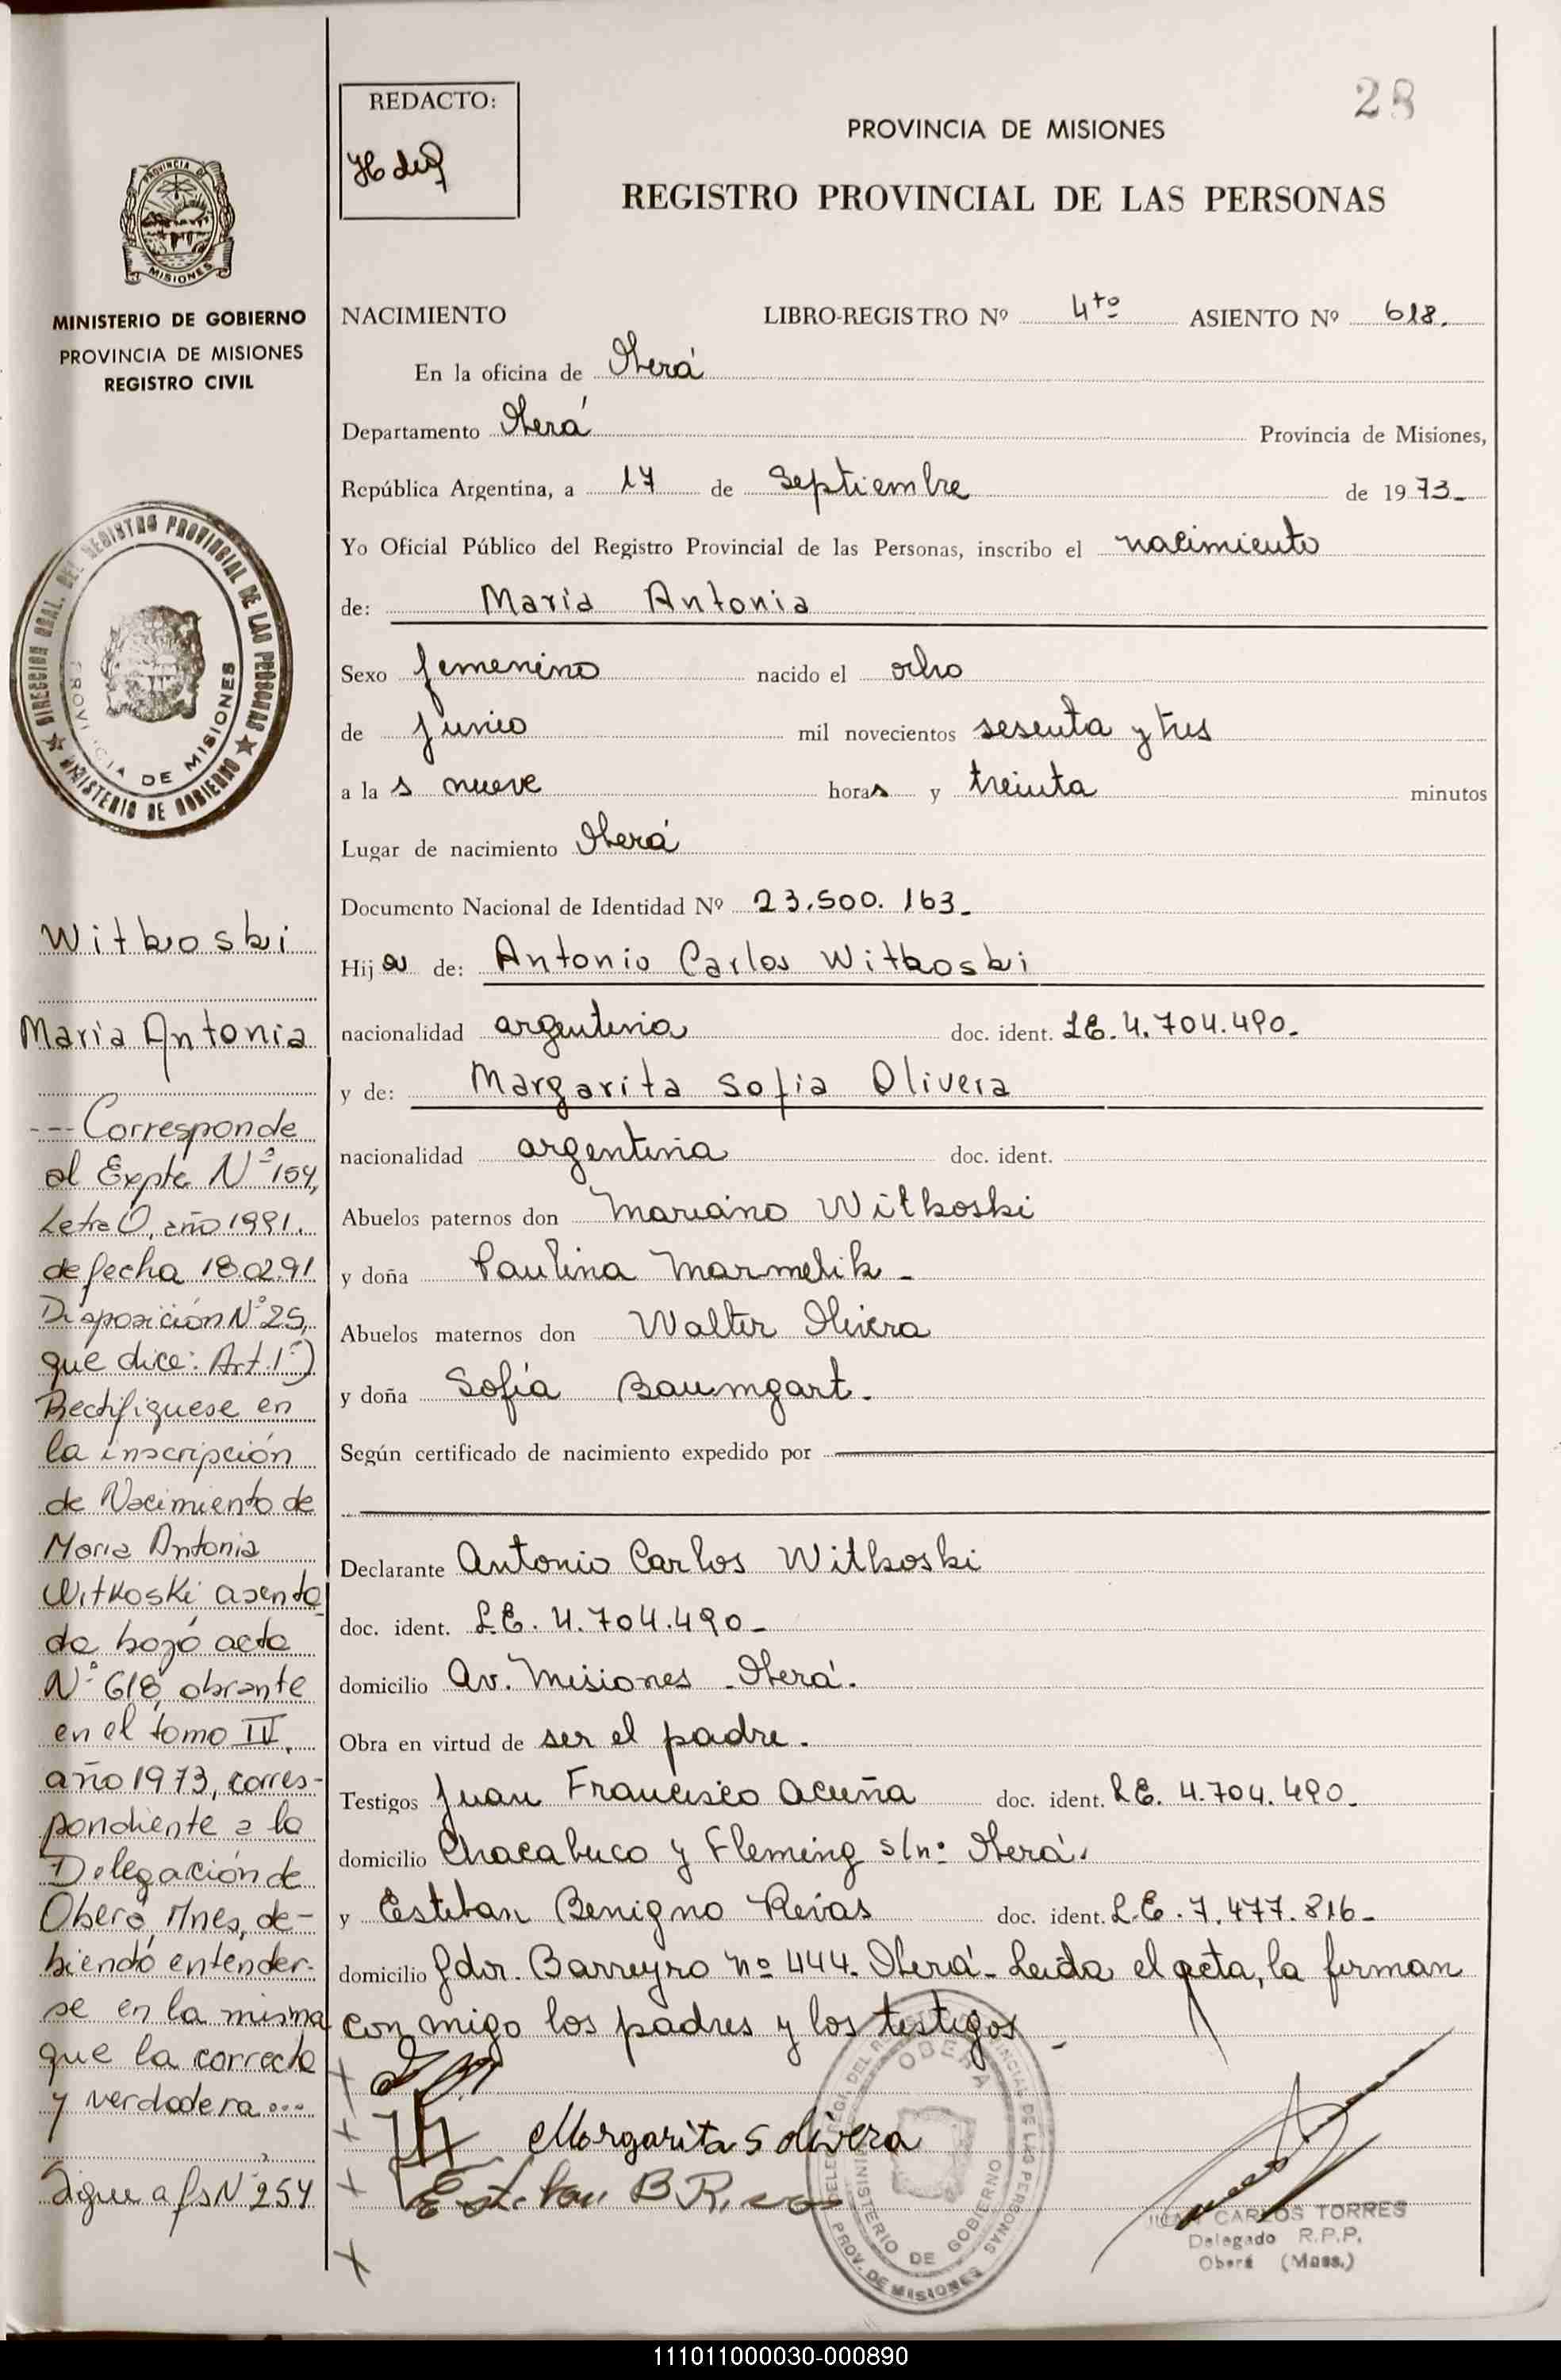 28
REDACTO:
PROVINCIA DE MISIONES
REGISTRO PROVINCIAL DE LAS PERSONAS
PROVINCIA DE
MISIONES
MINISTERIO DE GOBIERNO
PROVINCIA DE MISIONES
REGISTRO CIVIL
DIRECCION GRAL. DEL REGISTRO PROVINCIAL DE LAS PERSONAS
MINISTERIO DE GOBIERNO
PROVINCIA DE MISIONES
Witkoski
Maria Antonia
--- Corresponde
al Expte Nº 154,
Letra O, año 1991.
de fecha 18.02.91
Disposición Nº 25,
que dice: Art. 1º)
Rectifiquese en
la inscripción
de Nacimiento de
Maria Antonia
Witkoski asenta
da bajo acta
Nº 618, obrante
en el tomo IV,
año 1973, corres-
pondiente a la
Delegación de
Oberá, Mnes, de-
biendo entender-
se en la misma
que la correcta
y verdadera...
Sigue a fs Nº 254
NACIMIENTO LIBRO-REGISTRO Nº 4to ASIENTO Nº 618.
En la oficina de Oberá
Departamento Oberá Provincia de Misiones,
República Argentina, a 17 de Septiembre de 1973-
Yo Oficial Público del Registro Provincial de las Personas, inscribo el nacimiento
de: Maria Antonia
Sexo femenino nacido el ocho
de junio mil novecientos sesenta y tres
a las nueve horas y treinta minutos
Lugar de nacimiento Oberá
Documento Nacional de Identidad Nº 23.500.163-
Hija de: Antonio Carlos Witkoski
nacionalidad argentina doc. ident. LE. 4.704.490-
y de: Margarita Sofia Olivera
nacionalidad argentina doc. ident.
Abuelos paternos don Mariano Witkoski
y doña Paulina Marmelik-
Abuelos maternos don Walter Olivera
y doña Sofía Baumgart.
Según certificado de nacimiento expedido por
Declarante Antonio Carlos Witkoski
doc. ident. L.E. 4.704.490-
domicilio Av. Misiones - Oberá.
Obra en virtud de ser el padre.
Testigos Juan Francisco Acuña doc. ident. LE. 4.704.490-
domicilio Chacabuco y Fleming s/nº Oberá.
y Esteban Benigno Reivas doc. ident. L.E. 7.477.816-
domicilio Gdor. Barreyro nº 444. Oberá- Leida el acta, la firman
con migo los padres y los testigos-
Margarita S Olivera
Esteban B R
OBERA
MINISTERIO DE GOBIERNO
PROV. DE MISIONES
JUAN CARLOS TORRES
Delegado R.P.P.
Oberá (Mnes.)
111011000030-000890